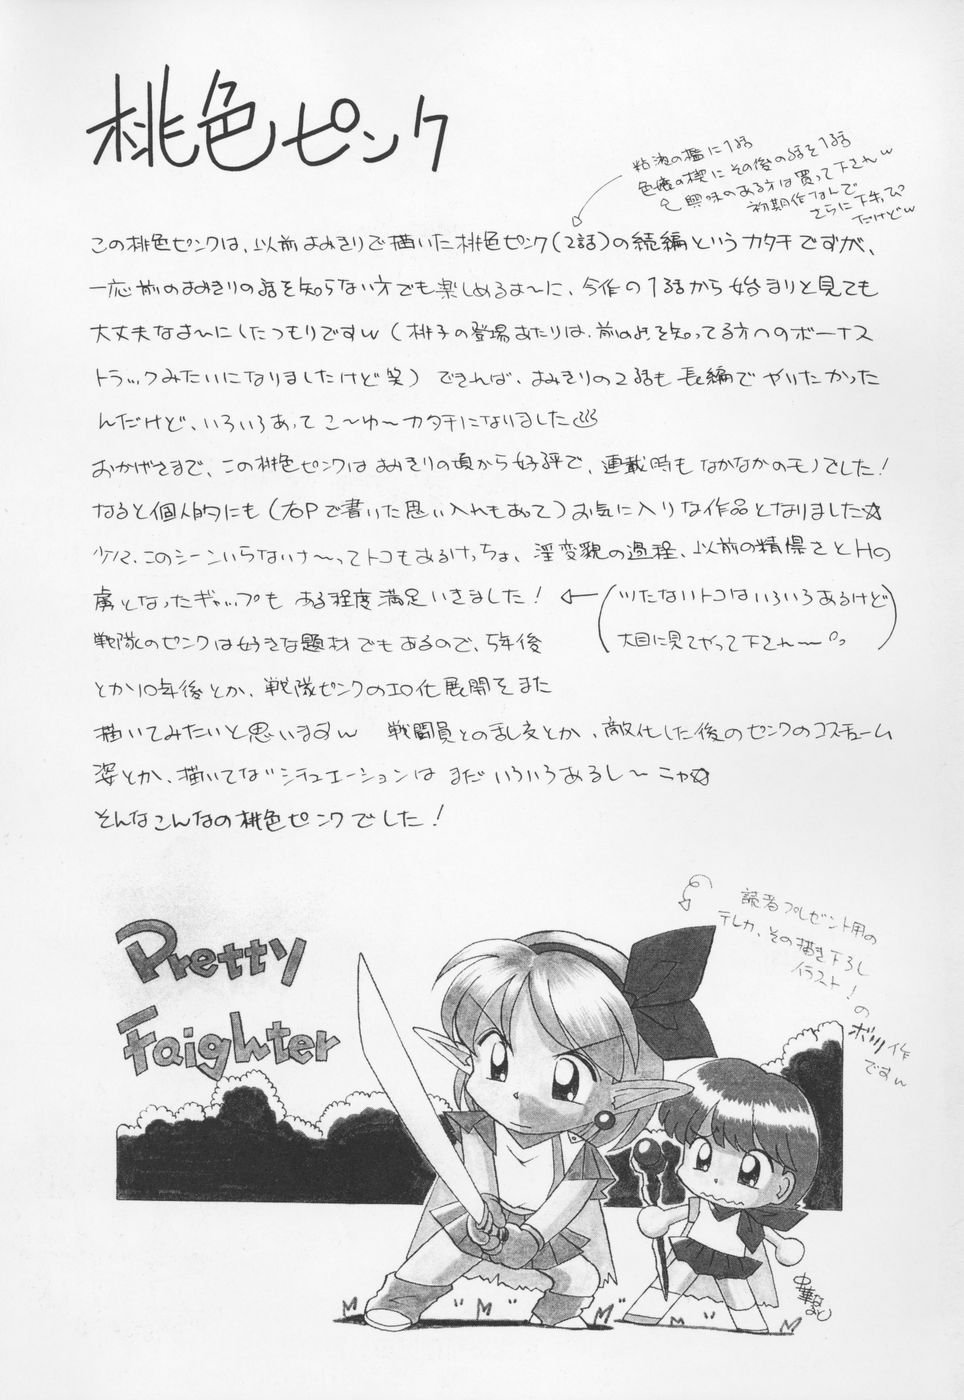 桃色ピンク
粘液の檻に1話
色癒の楔にその後の話を1話
興味のある方は買って下されw
初期作なんで
さらに下手っぴ
だけどw
この桃色ピンクは、以前よみきりで描いた桃色ピンク(2話)の続編というカタチですが、
一応前のよみきりの話を知らない方でも楽しめるよ〜に、今作の1話から始まりと見ても
大丈夫なよ〜にしたつもりですw(桃子の登場あたりは、前のよみを知ってる方へのボーナス
トラックみたいになりましたけど笑)できれば、よみきりの2話も長編でやりたかった
んだけど、いろいろあってこ〜ゆ〜カタチになりました
おかげさまで、この桃色ピンクはよみきりの頃から好評で、連載時もなかなかのモノでした!
なると個人的にも(右Pで書いた思い入れもあって)お気に入りな作品となりました☆
少々、このシーンいらないけ〜ってトコもあるけっちょ、淫変貌の過程、以前の精悍さとHの
虜となったギャップも ある程度満足いきました!
←(ツたないトコはいろいろあるけど
大目に見てやって下され〜)
戦隊のピンクは好きな題材でもあるので、5年後
とか10年後とか、戦隊ピンクのエロ化展開をまた
描いてみたいと思いますw 戦闘員との乱交とか、敵化した後のピンクのコスチューム
姿とか、描いてないシチュエーションはまだいろいろあるし〜ニャ☆
そんなこんなの桃色ピンクでした!
読者プレゼント用の
テレカ、その描き下ろし
イラスト!
の
ボツ作
ですw
Pretty
Faighter
中華なると